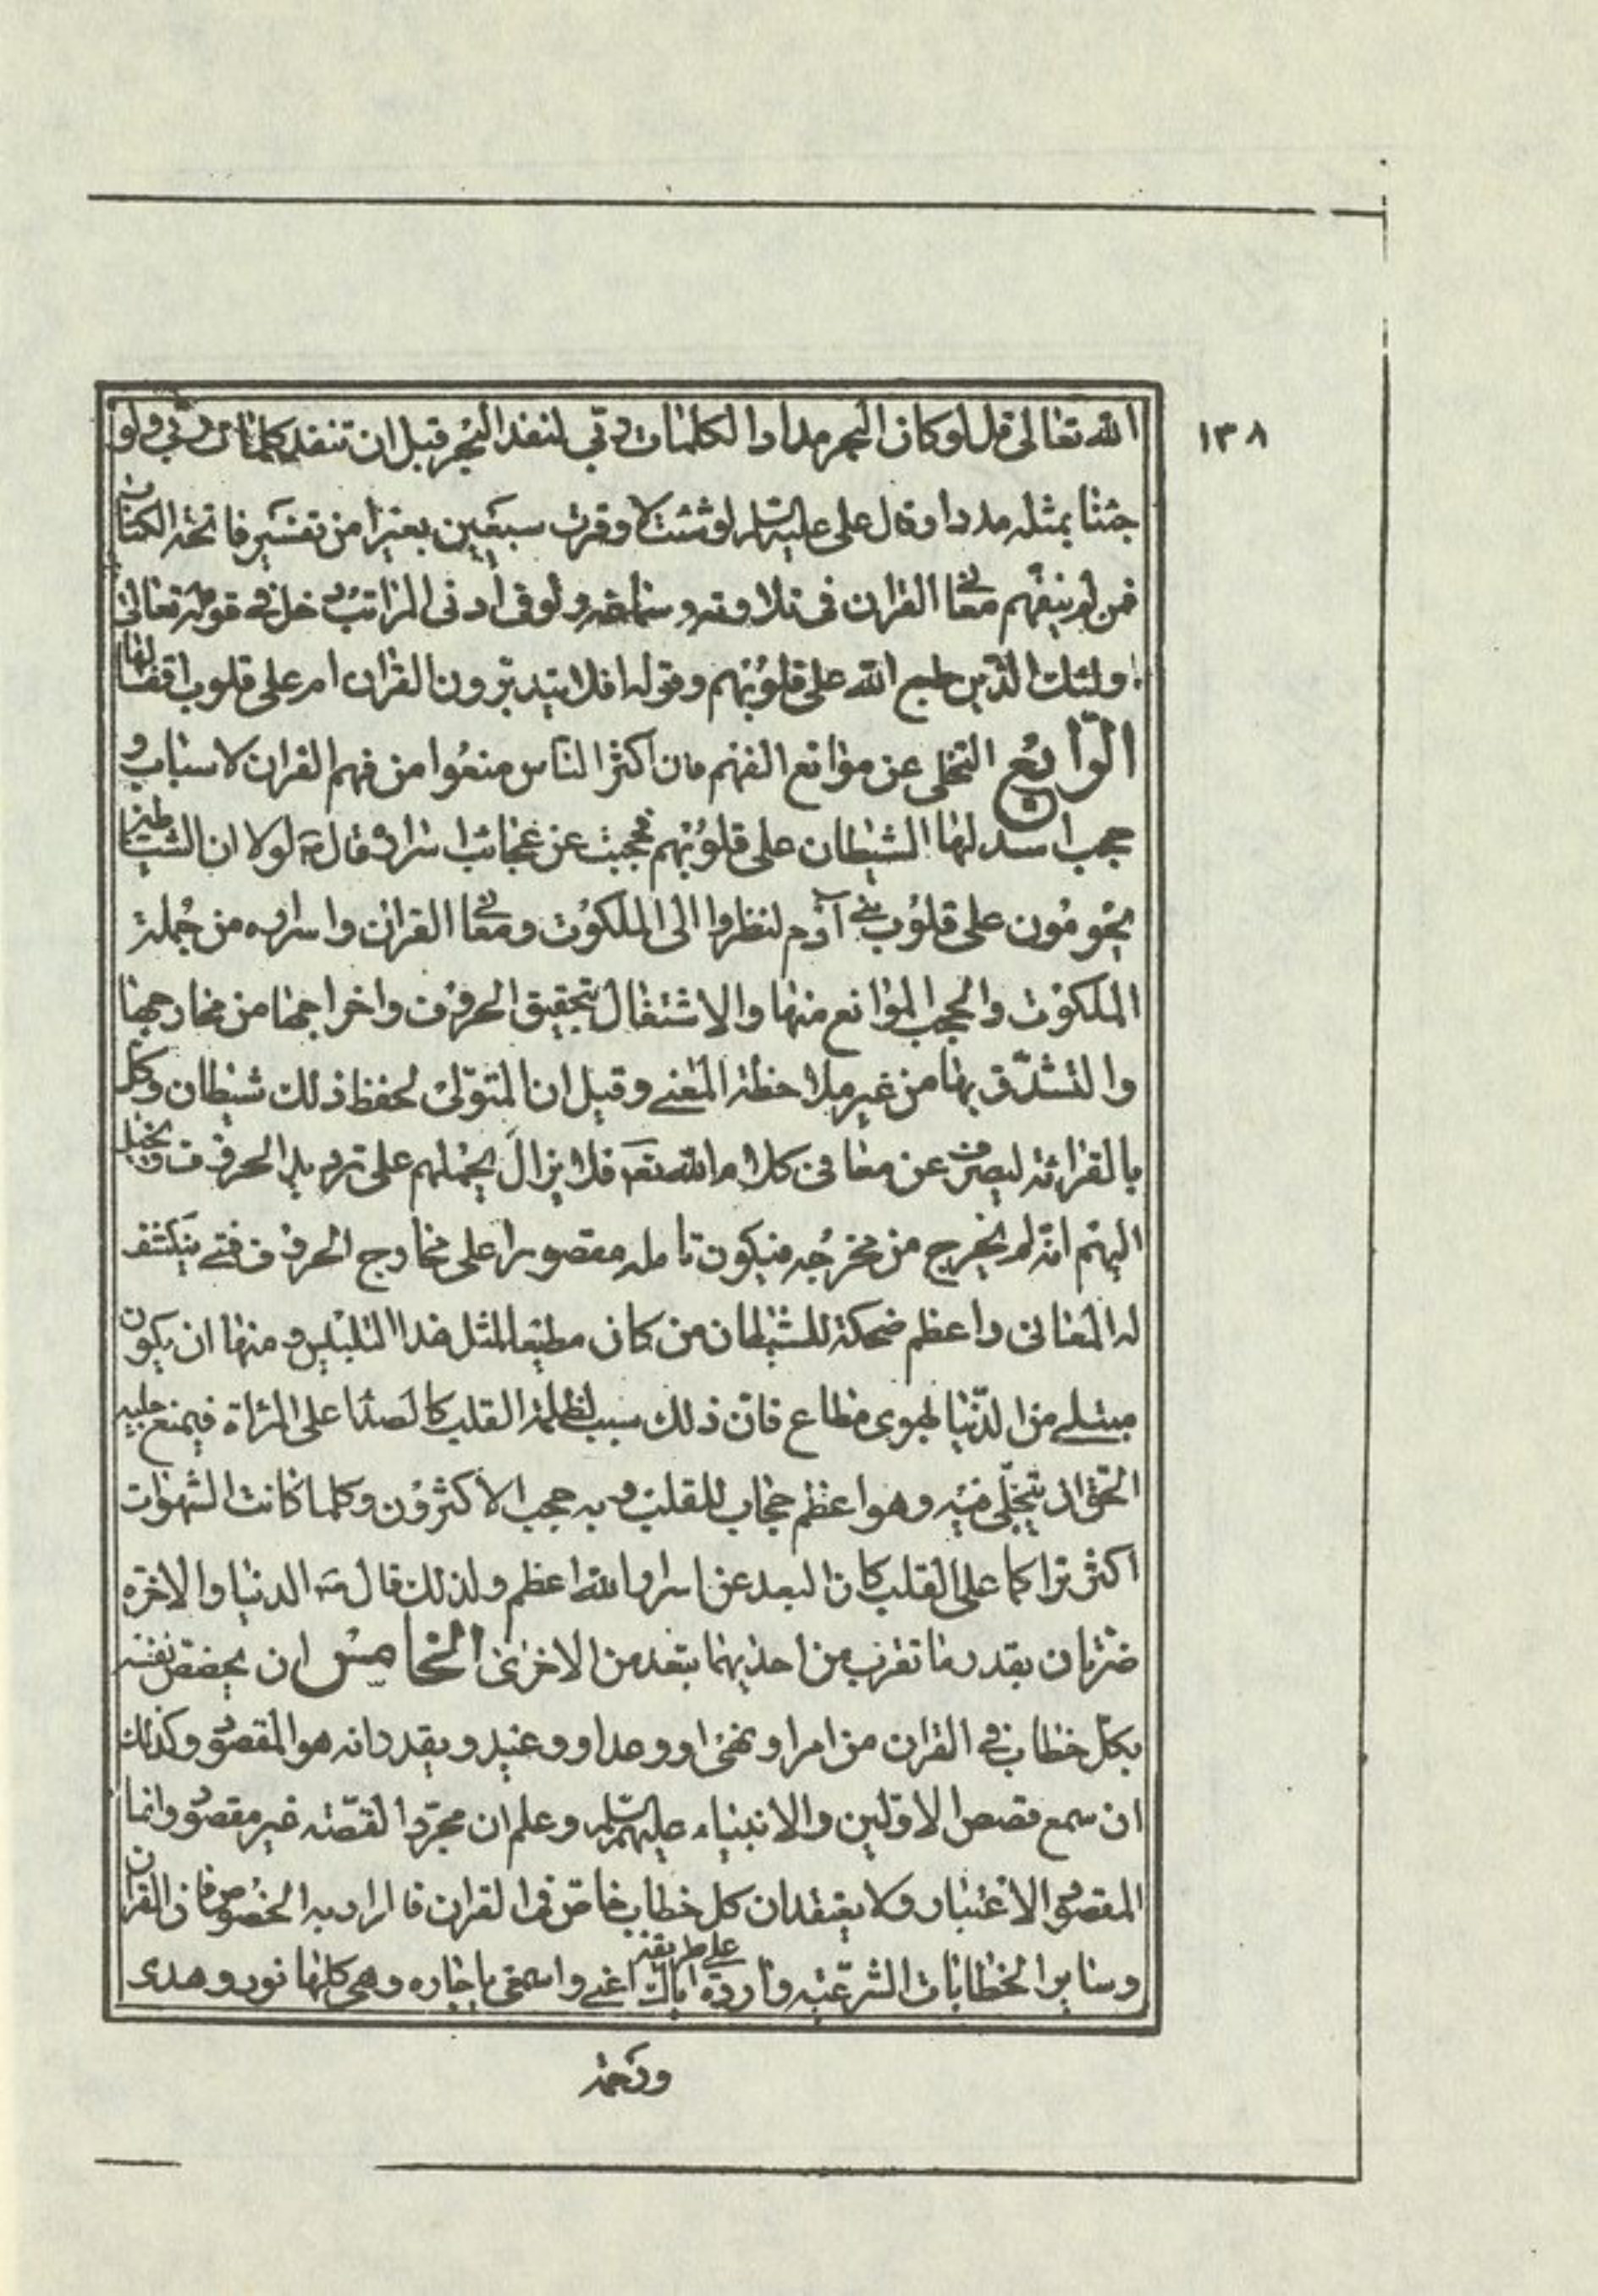 ١٣٨
الله تعالى قل لو كان البحر مدادا لكلمات ربي لنفد البحر قبل ان تنفد كلمات ربي ولو
جئنا بمثله مددا وقال علي عليه السلم لو شئت لاوقرت سبعين بعيرا من تفسير فاتحة الكتاب
فمن لم يتفهم معاني القران في تلاوته وسماعه ولو في ادنى المراتب دخل في قوله تعالى
اولئك الذين طبع الله على قلوبهم وقوله افلا يتدبرون القران ام على قلوب اقفالها
الرابع التخلي عن موانع الفهم فان اكثر الناس منعوا من فهم القران لاسباب و
حجب اسدلها الشيطان على قلوبهم فحجبت عن عجائب اسراره قال ص لولا ان الشياطين
يحومون على قلوب بني آدم لنظروا الى الملكوت ومعاني القران واسراره من جملة
الملكوت والحجب الموانع منها والاشتغال بتحقيق الحروف واخراجها من مخارجها
والتشدق بها من غير ملاحظة المعنى وقيل ان المتولي لحفظ ذلك شيطان وكل
بالقرائة ليصرف عن معاني كلام الله تعه فلا يزال يحملهم على ترديد الحروف ويخيل
اليهم انه لم يخرج من مخرجه فيكون تامله مقصورا على مخارج الحروف فمتى ينكشف
له المعاني واعظم ضحكة للشيطان من كان مطيعا لمثل هذا التلبيس ومنها ان يكون
مبتلى من الدنيا بهوى مطاع فان ذلك سبب لظلمة القلب كالصداء على المرآة فيمنع جلية
الحق ان يتجلى فيه وهو اعظم حجاب للقلب وبه حجب الاكثرون وكلما كانت الشهوات
اكثر تراكما على القلب كان البعد عن اسرار الله اعظم ولذلك قال ص الدنيا والاخرة
ضرتان بقدر ما تقرب من احديهما تبعد من الاخرى الخامس ان يخصص نفسه
بكل خطاب في القران من امر او نهي او وعد او وعيد ويقدر انه هو المقصود وكذلك
ان سمع قصص الاولين والانبياء عليهم السلم وعلم ان مجرد القصة غير مقصود وانما
المقصود الاعتبار ولا يعتقد ان كل خطاب خاص في القران فالمراد به الخصوص فان القران
وساير الخطابات الشرعية واردة على طريقة اياك اعني واسمعي يا جاره وهي كلها نور وهدى
ورحمة